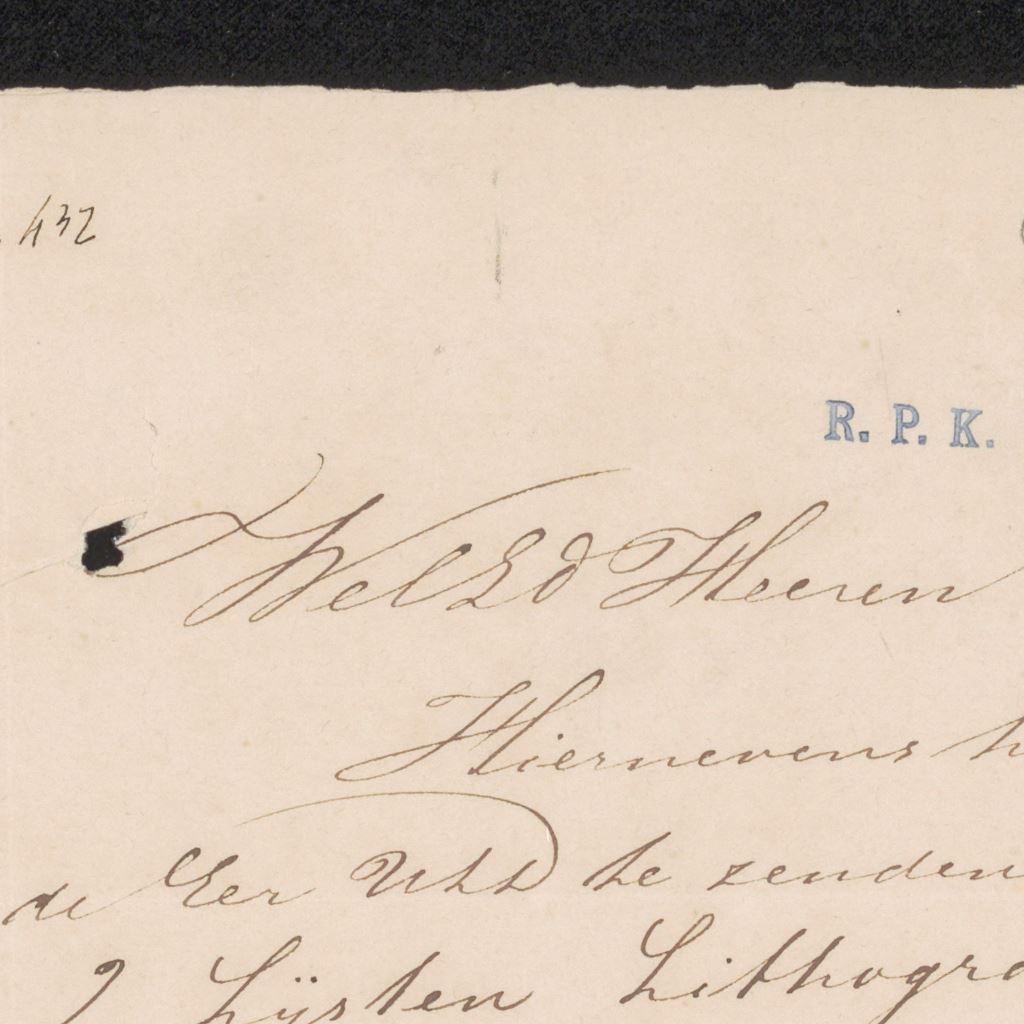 432
R. P. K.
WelEd Heeren
Hiernevens h
de Eer UEd te zenden
2 Lijsten Lithogra